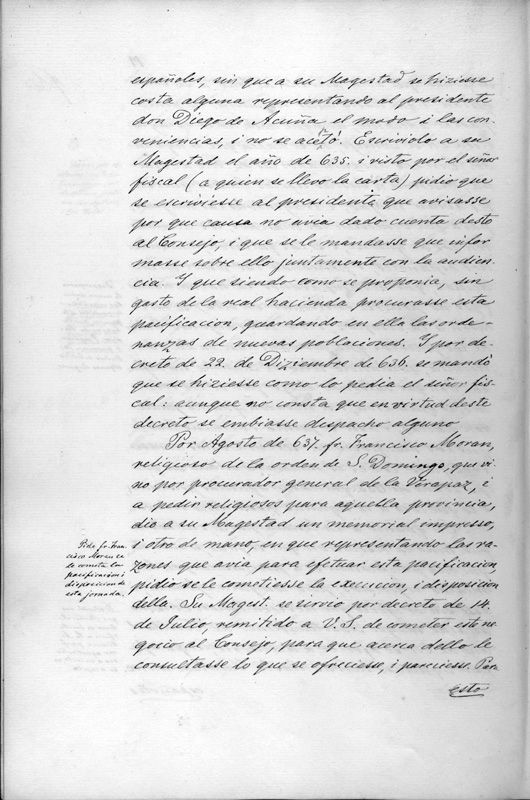 españoles, sin que a su Magestad se hiziesse
costa alguna representando al presidente
don Diego de Acuña el modo i las con
veniencias, i no se acetó. Escriviolo a su
Magestad el año de 635. i visto por el señor
fiscal (a quien se llevo la carta) pidio que
se escriviesse al presidente que avisasse
por que causa no avia dado cuenta desto
al Consejo, i que se le mandasse que infor
masse sobre ello juntamente con la audien
cia. I que siendo como se proponia, sin
gasto de la real hacienda procurasse esta
pacificacion, guardando en ella las orde-
nanzas de nuevas poblaciones. I por de-
creto de 22. de Diziembre de 636. se mandó
que se hiziesse como lo pedia el señor fis-
cal: aunque no consta que en virtud deste
decreto se embiasse despacho alguno
Por Agosto de 637. fr. Francisco Moran,
religioso de la orden de S. Domingo, que vi
no por procurador general de la Verapaz, i
a pedir religiosos para aquella provincia,
dio a su Magestad un memorial impresso,
i otro de mano, en que representando las ra-
zones que avia para efetuar esta pacificacion
pidio se le cometiesse la execucion, i disposicion
della. Su Magest. se sirvio por decreto de 14.
de Julio, remitido a V. S. de cometer este ne
gocio al Consejo, para que acerca dello le
consultasse lo que se ofreciesse, i pareciesse. Por
esto
Pide fr. Fran
cisco Moran se
le cometa la
pacificacion i
disposicion de
esta jornada.